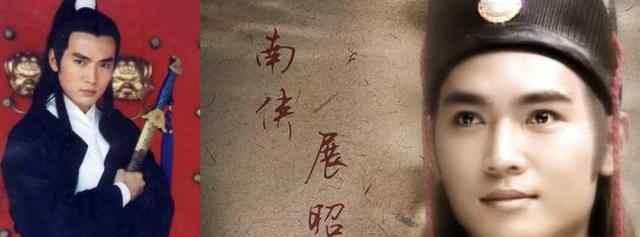 南侠
展昭